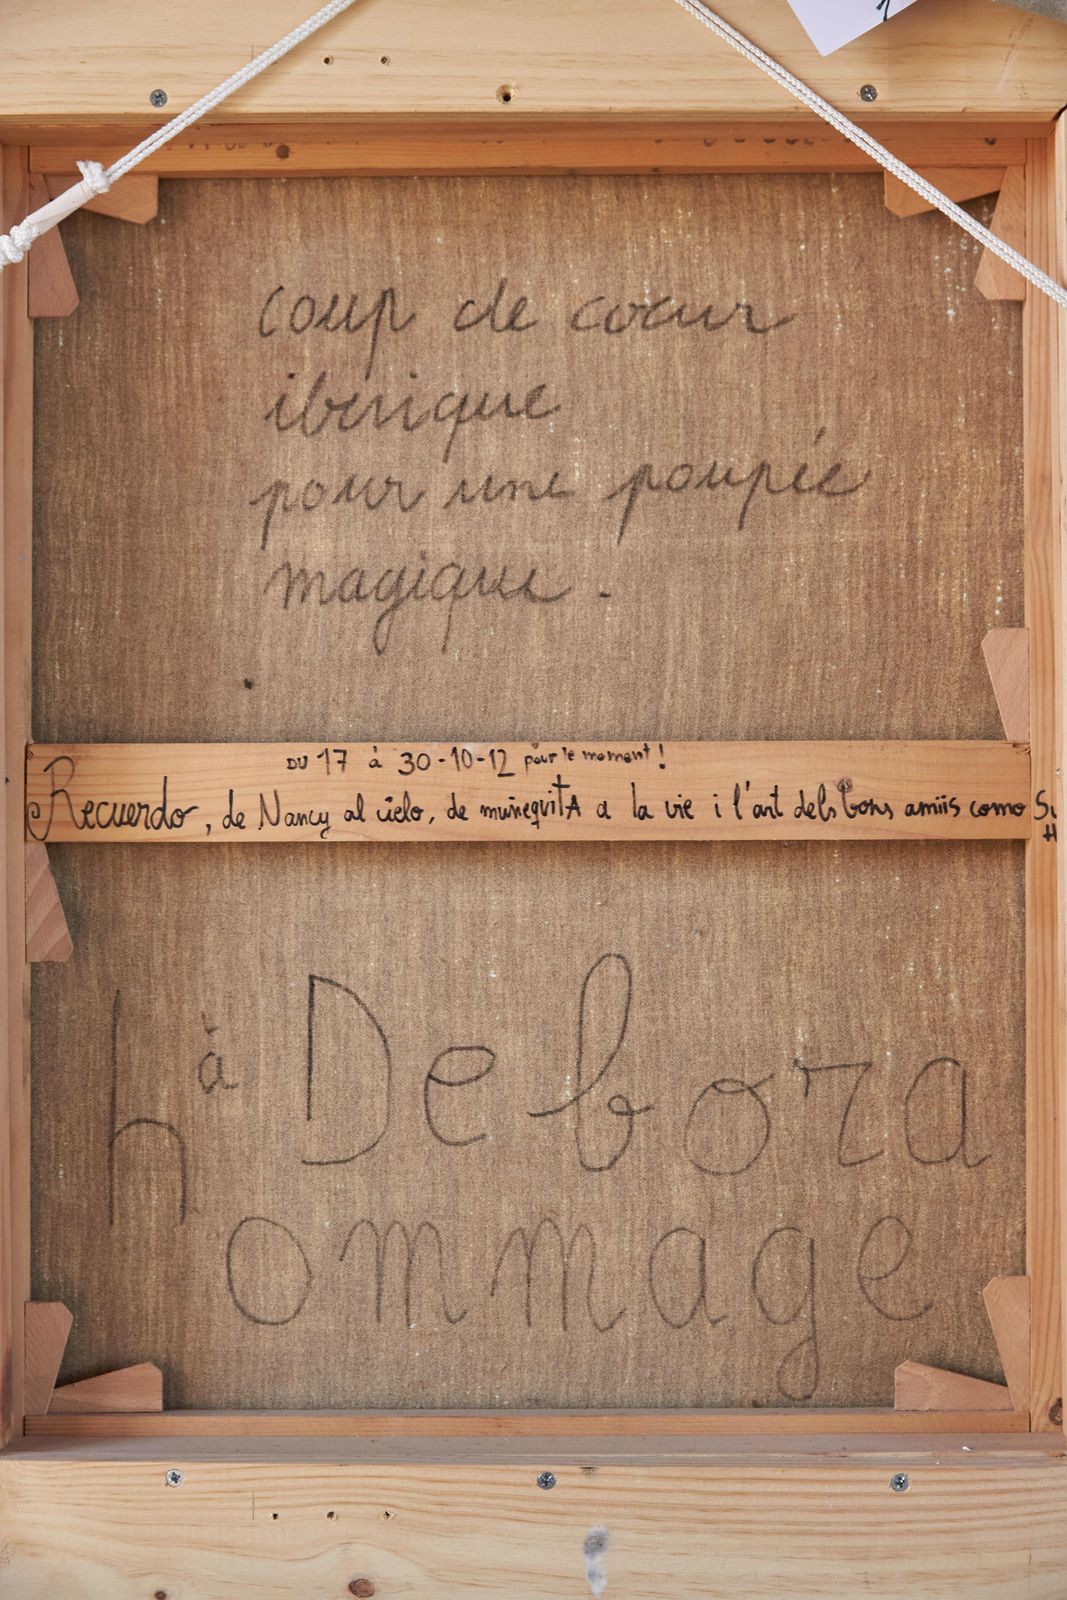 coup de coeur
iberique
pour une poupée
magique.
DU 17 à 30-10-12 pour le moment!
Recuerdo, de Nancy al cielo, de muñequitA a la vie i l'art dels bons amiis como
à Debora
hommage